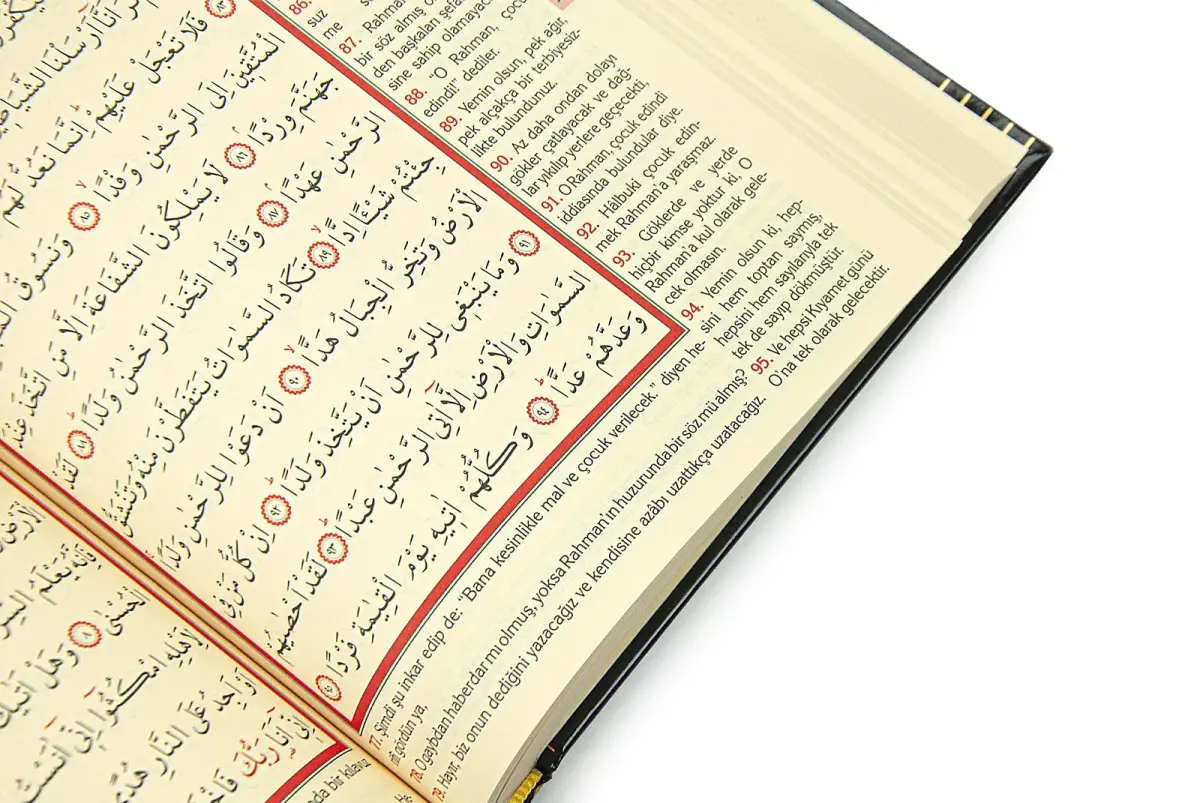 اَنَّٓا اَرْسَلْنَا
فَلَا تَعْجَلْ عَلَيْهِمْ اِنَّمَا نَعُدُّ لَهُمْ
الْمُتَّقٖينَ اِلَى الرَّحْمٰنِ وَفْدًا ٨٥ وَنَسُوقُ
جَهَنَّمَ وِرْدًا ٨٦ لَا يَمْلِكُونَ الشَّفَاعَةَ اِلَّا مَنِ اتَّخَذَ عِنْدَ
الرَّحْمٰنِ عَهْدًا ٨٧ وَقَالُوا اتَّخَذَ الرَّحْمٰنُ وَلَدًا ٨٨ لَقَدْ
جِئْتُمْ شَيْـًٔا اِدًّا ٨٩ تَكَادُ السَّمٰوَاتُ يَتَفَطَّرْنَ مِنْهُ وَتَنْشَقُّ
الْاَرْضُ وَتَخِرُّ الْجِبَالُ هَدًّا ٩٠ اَنْ دَعَوْا لِلرَّحْمٰنِ وَلَدًا
٩١ وَمَا يَنْبَغٖي لِلرَّحْمٰنِ اَنْ يَتَّخِذَ وَلَدًا ٩٢ اِنْ كُلُّ مَنْ فِي
السَّمٰوَاتِ وَالْاَرْضِ اِلَّٓا اٰتِي الرَّحْمٰنِ عَبْدًا ٩٣ لَقَدْ اَحْصٰيهُمْ
وَعَدَّهُمْ عَدًّا ٩٤ وَكُلُّهُمْ اٰتٖيهِ يَوْمَ الْقِيٰمَةِ فَرْدًا ٩٥
86.
suz
me
87. Rahman
bir söz almış o
den başkaları şefa
sine sahip olamayac
88. "O Rahman, çocu
edindi!" dediler.
89. Yemin olsun, pek ağır,
pek alçakça bir terbiyesiz-
likte bulundunuz.
90. Az daha ondan dolayı
gökler çatlayacak ve dağ-
lar yıkılıp yerlere geçecekti.
91. O Rahman, çocuk edindi
iddiasında bulundular diye.
92. Hâlbuki çocuk edin-
mek Rahman'a yaraşmaz
93. Göklerde ve yerde
hiçbir kimse yoktur ki, O
Rahman'a kul olarak gele-
cek olmasın.
94. Yemin olsun ki, hep-
sini hem toptan saymış,
hepsini hem sayılarıyla tek
tek de sayıp dökmüştür.
95. Ve hepsi Kıyamet günü
O'na tek olarak gelecektir.
77. Şimdi şu inkar edip de: "Bana kesinlikle mal ve çocuk verilecek." diyen he-
rifi gördün ya,
78. O gaybdan haberdar mı olmuş, yoksa Rahman'ın huzurunda bir söz mü almış?
79. Hayır, biz onun dediğini yazacağız ve kendisine azâbı uzattıkça uzatacağız.
يَعْلَمُ السِّرَّ
الْحُسْنٰى ٨ وَهَلْ اَتٰيكَ
لِاَهْلِهِ امْكُثُٓوا اِنّٖٓي اٰنَسْتُ
اَوْ اَجِدُ عَلَى النَّارِ هُدًى
اِنّٖٓي اَنَا۬ رَبُّكَ
nda bir kılavu